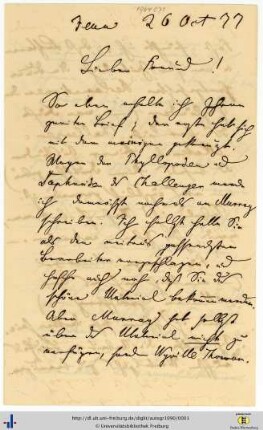 Jena 26 Oct 77
Lieber Freund!
So eben erhalte ich Ihren
zweiten Brief; der erste hat sich
mit dem meinigen gekreuzt.
Wegen der Phyllopoden
Daphniden des Challenger werde
ich demnächst nochmals an Murray
schreiben. Ich selbst halte Sie
als den weitaus passendsten
Bearbeiter vorgeschlagen, und
hoffe auch noch, daß Sie das
schöne Material bekommen werden.
Aber Murray hat selbst
über das Material nicht zu
verfügen, sondern Wyville Thomson.
http://dl.ub.uni-freiburg.de/diglit/autogr1090/0001
© Universitätsbibliothek Freiburg